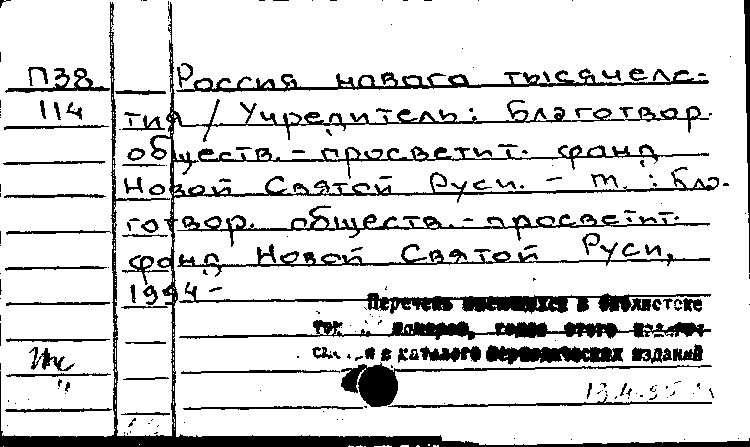 П38 Россия нового тысячеле-
114 тия / Учредитель: Благотвор.
обществ. - просветит. фонд
Новой Святой Руси. - М. : Бла-
готвор. обществ. - просветит.
фонд Новой Святой Руси,
1994 -
Перечень имеющихся в библиотеке
номеров, томов этого
в каталоге периодических изданий